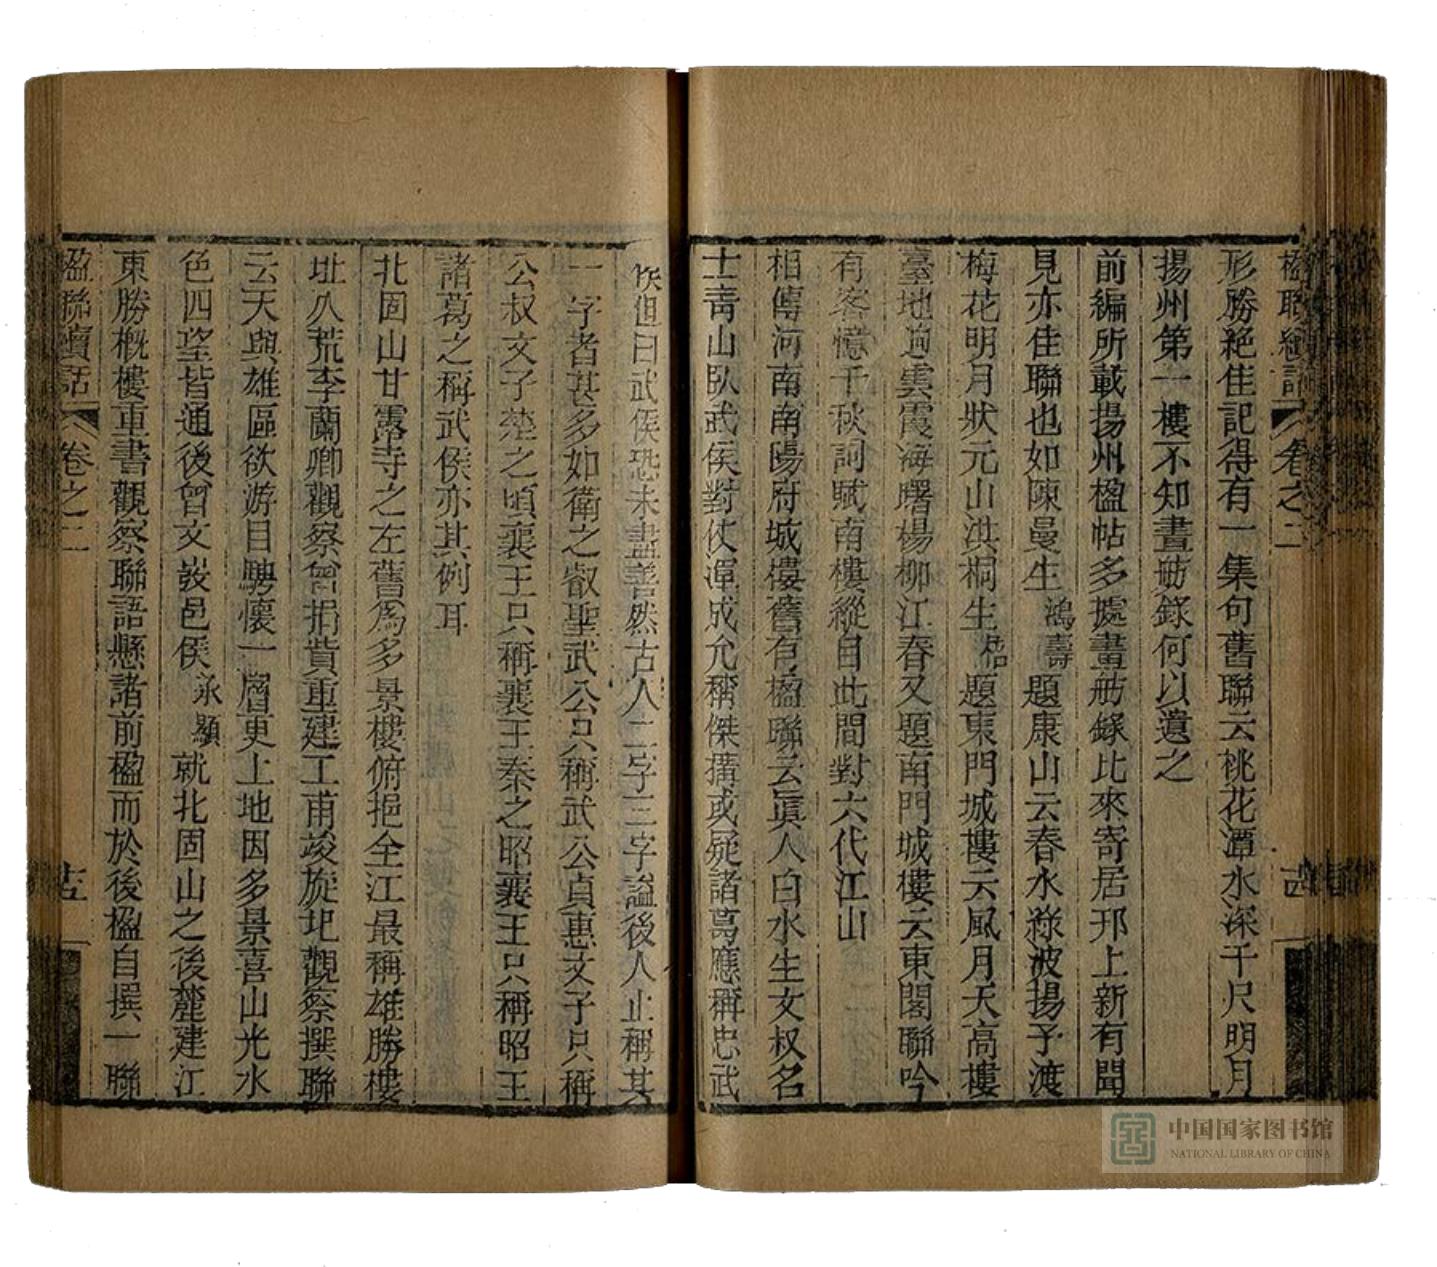 楹聯續話 卷之二
形勝絕佳記得有一集句舊聯云桃花潭水深千尺明月
揚州第一樓不知畫舫錄何以遺之
前編所載揚州楹帖多據畫舫錄比來寄居邗上新有聞
見亦佳聯也如陳曼生鴻壽題康山云春水綠波揚子渡
梅花明月狀元山洪桐生梧題東門城樓云風月天高樓
臺地迥雲霞海曙楊柳江春又題南門城樓云東閣聯吟
有客憶千秋詞賦南樓縱目此間對六代江山
相傳河南南陽府城樓舊有楹聯云眞人白水生文叔名
士青山臥武侯對仗渾成允稱傑搆或疑諸葛應稱忠武
侯但曰武侯恐未盡善然古人二字三字謚後人止稱其
一字者甚多如衛之叡聖武公只稱武公貞惠文子只稱
公叔文子楚之頃襄王只稱襄王秦之昭襄王只稱昭王
諸葛之稱武侯亦其例耳
北固山甘露寺之左舊爲多景樓俯挹全江最稱雄勝樓
址久荒李蘭卿觀察曾捐貲重建工甫竣旋圮觀察撰聯
云天與雄區欲游目騁懷一層更上地因多景喜山光水
色四望皆通後曾文毅邑侯承顯就北固山之後麓建江
東勝概樓重書觀察聯語懸諸前楹而於後楹自撰一聯
楹聯續話 卷之二
中国国家图书馆
NATIONAL LIBRARY OF CHINA